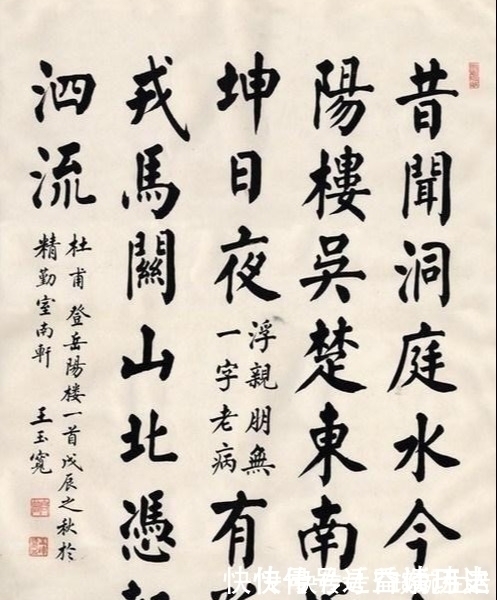 昔聞洞庭水今
陽樓吳楚東南
坤日夜
浮親朋無
一字老病
有
戎馬關山北憑
泗流
杜甫登岳陽楼一首戊辰之秋於
精勤室南軒
王玉寬